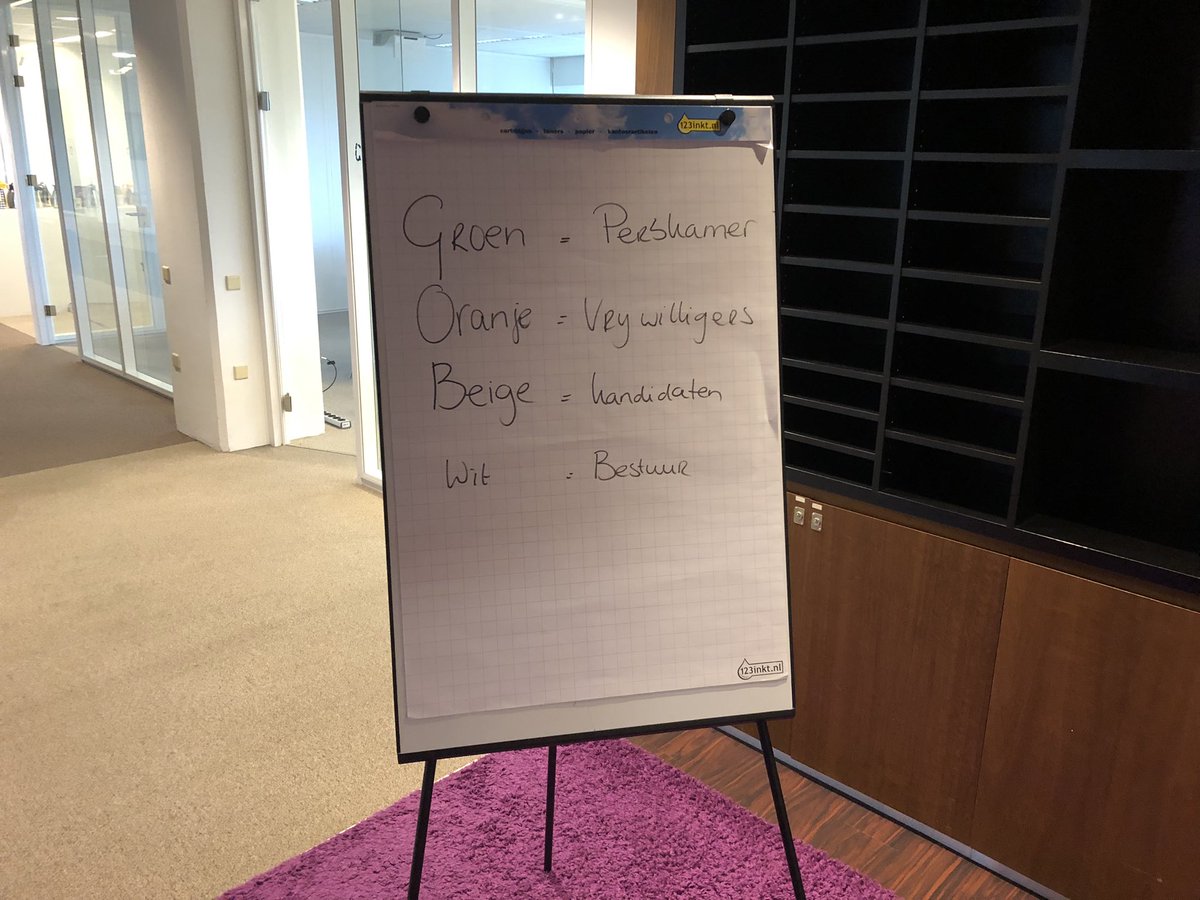 cartridges - toners - papier - kantoorartikelen
123inkt.nl
Groen = Perskamer
Oranje = Vrywilligers
Beige = kandidaten
Wit = Bestuur
123inkt.nl